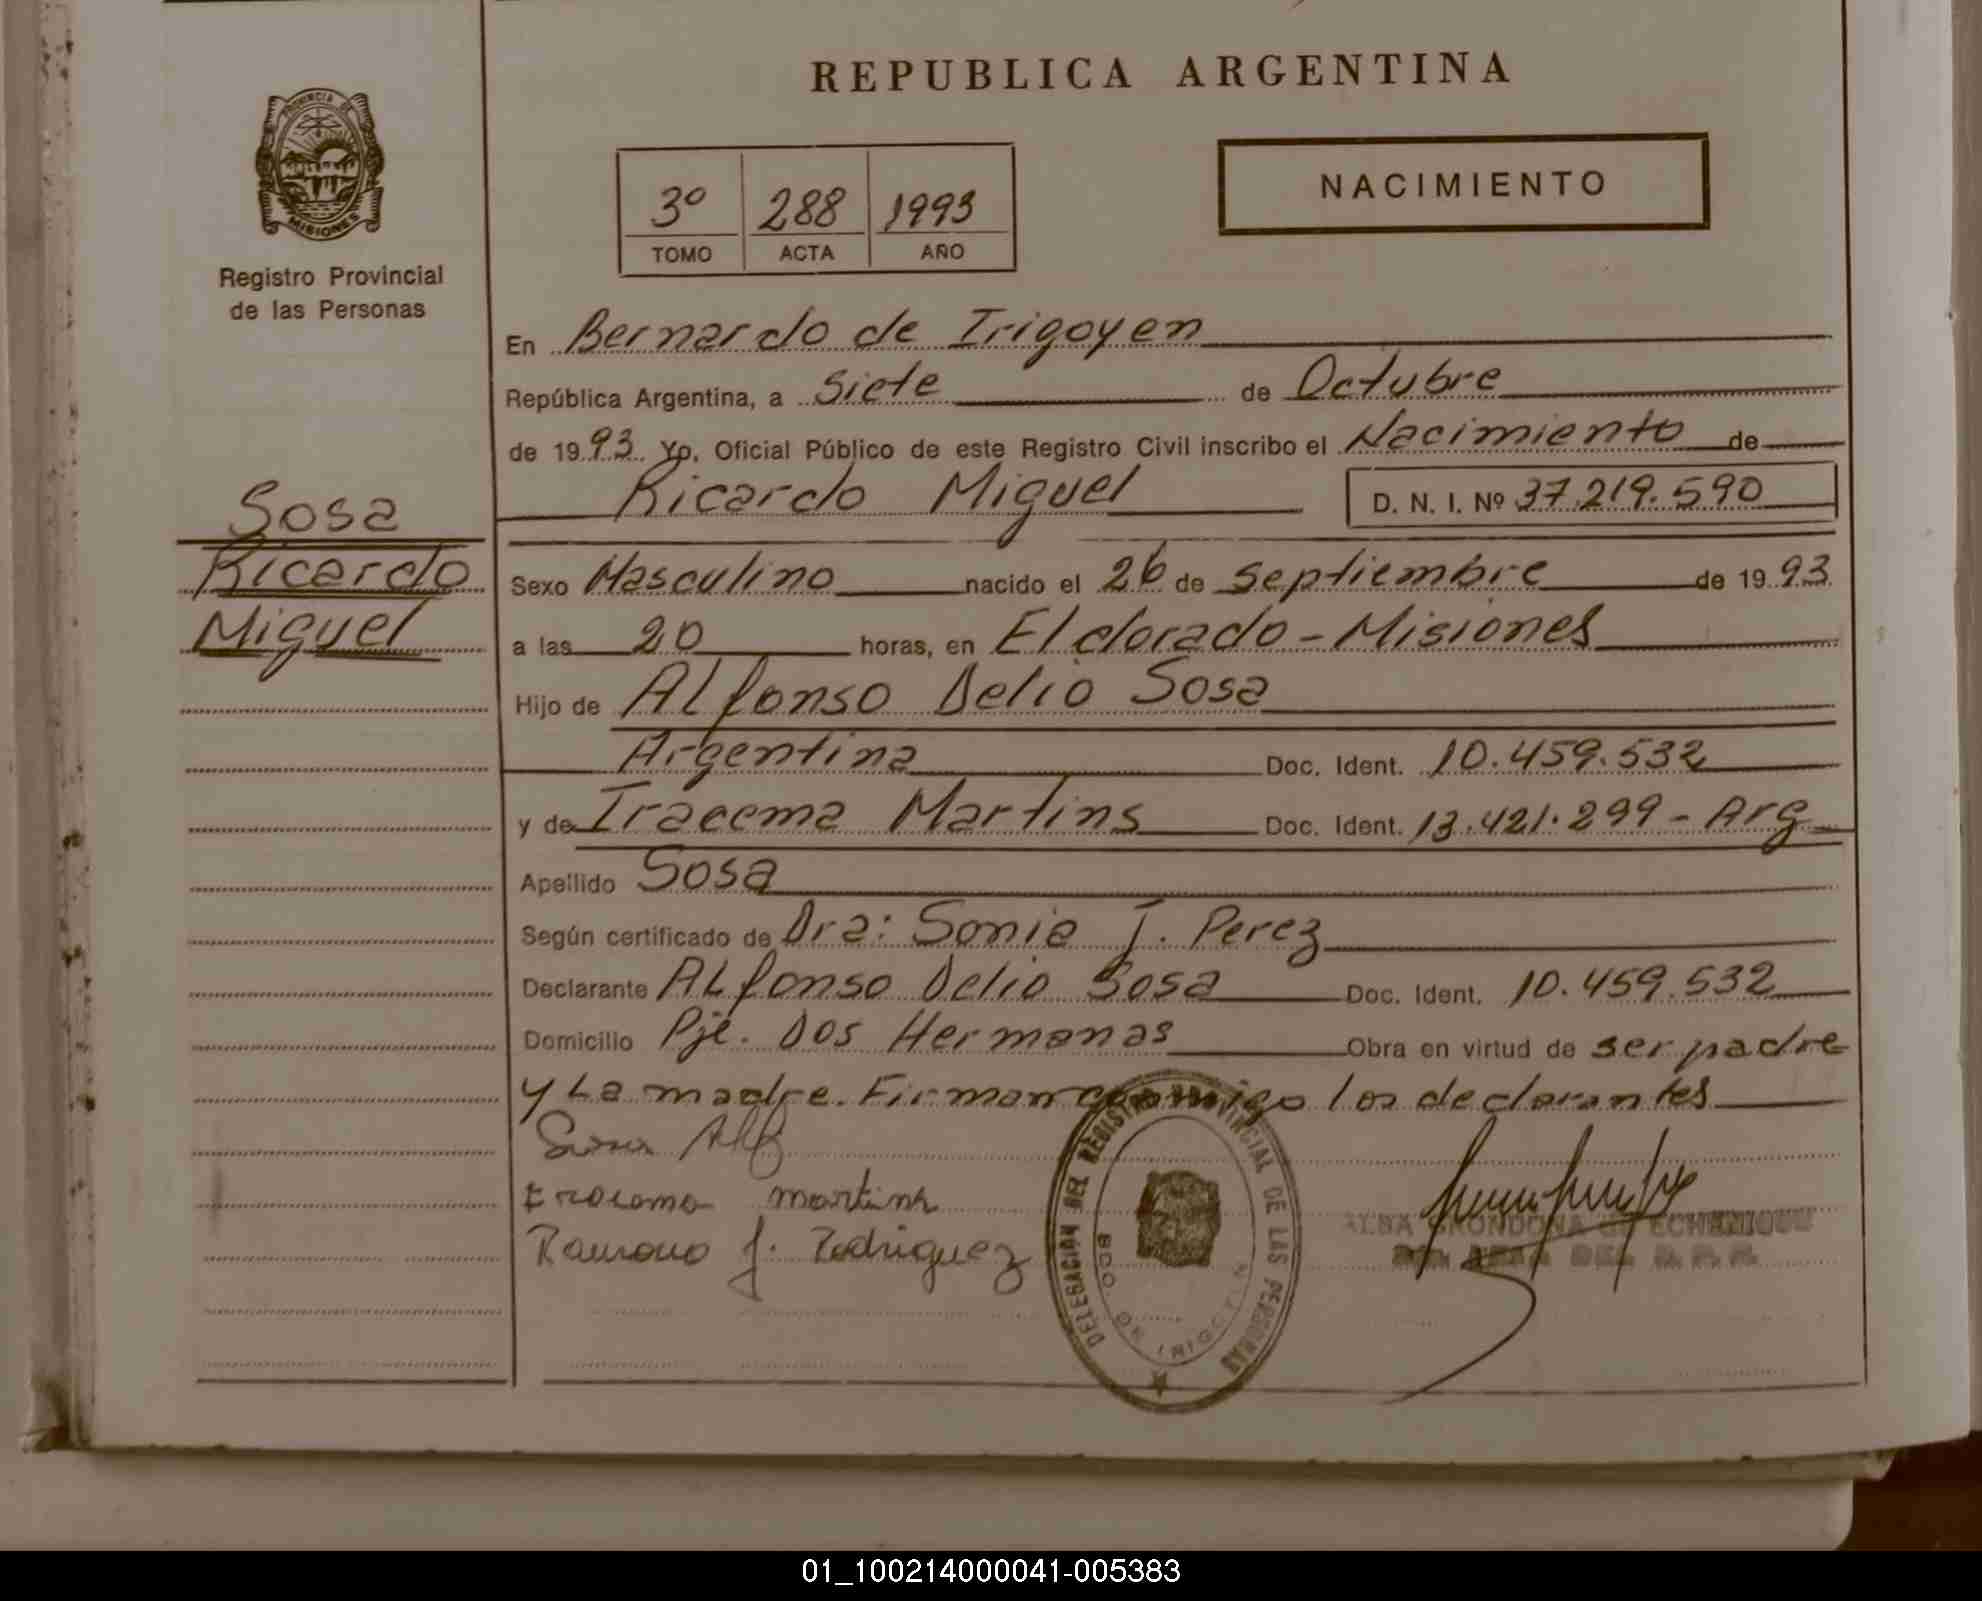 REPUBLICA ARGENTINA
PROVINCIA DE
MISIONES
Registro Provincial
de las Personas
3º 288 1993
TOMO ACTA AÑO
NACIMIENTO
En Bernardo de Irigoyen
República Argentina, a Siete de Octubre
de 1993 Yo, Oficial Público de este Registro Civil inscribo el Nacimiento de
Ricardo Miguel D. N. I. Nº 37.219.590
Sosa
Ricardo
Miguel
Sexo Masculino nacido el 26 de Septiembre de 1993
a las 20 horas, en Eldorado - Misiones
Hijo de Alfonso Delio Sosa
Argentina Doc. Ident. 10.459.532
y de Iracema Martins Doc. Ident. 13.421.299 - Arg
Apellido Sosa
Según certificado de Dra: Sonia J. Perez
Declarante Alfonso Delio Sosa Doc. Ident. 10.459.532
Domicilio Pje. Dos Hermanas Obra en virtud de ser padre
y La madre. Firman conmigo los declarantes
Sosa Alf
Eracema martins
Ramono J. Rodriguez
DELEGACIÓN DEL REGISTRO PROVINCIAL DE LAS PERSONAS
BDO. DE IRIGOYEN
ALBA GRONDONA de ECHENIQUE
01_100214000041-005383